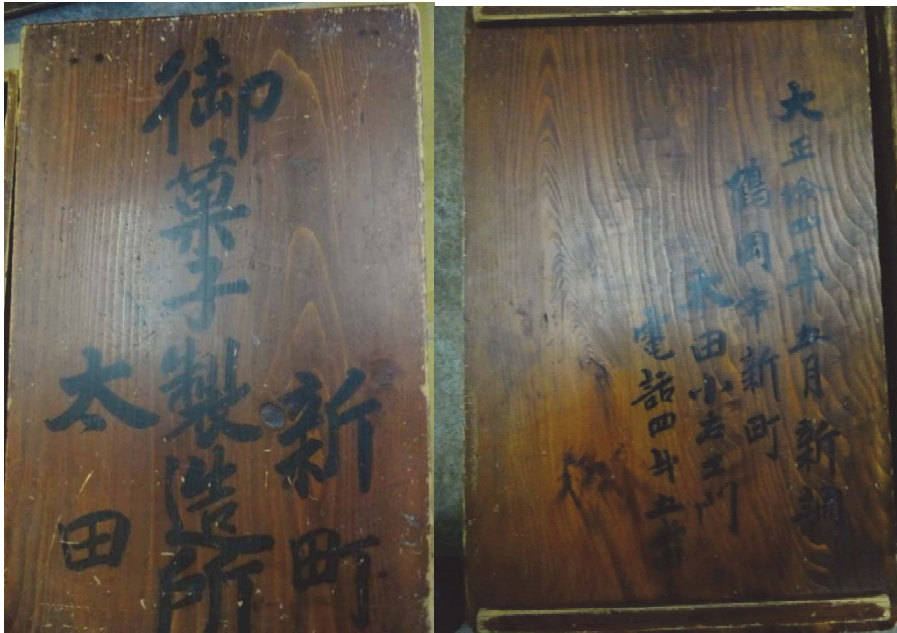 新町
御菓子製造所
太田
大正拾四年五月新調
鶴岡市新町
太田小右エ門
電話四弐五番